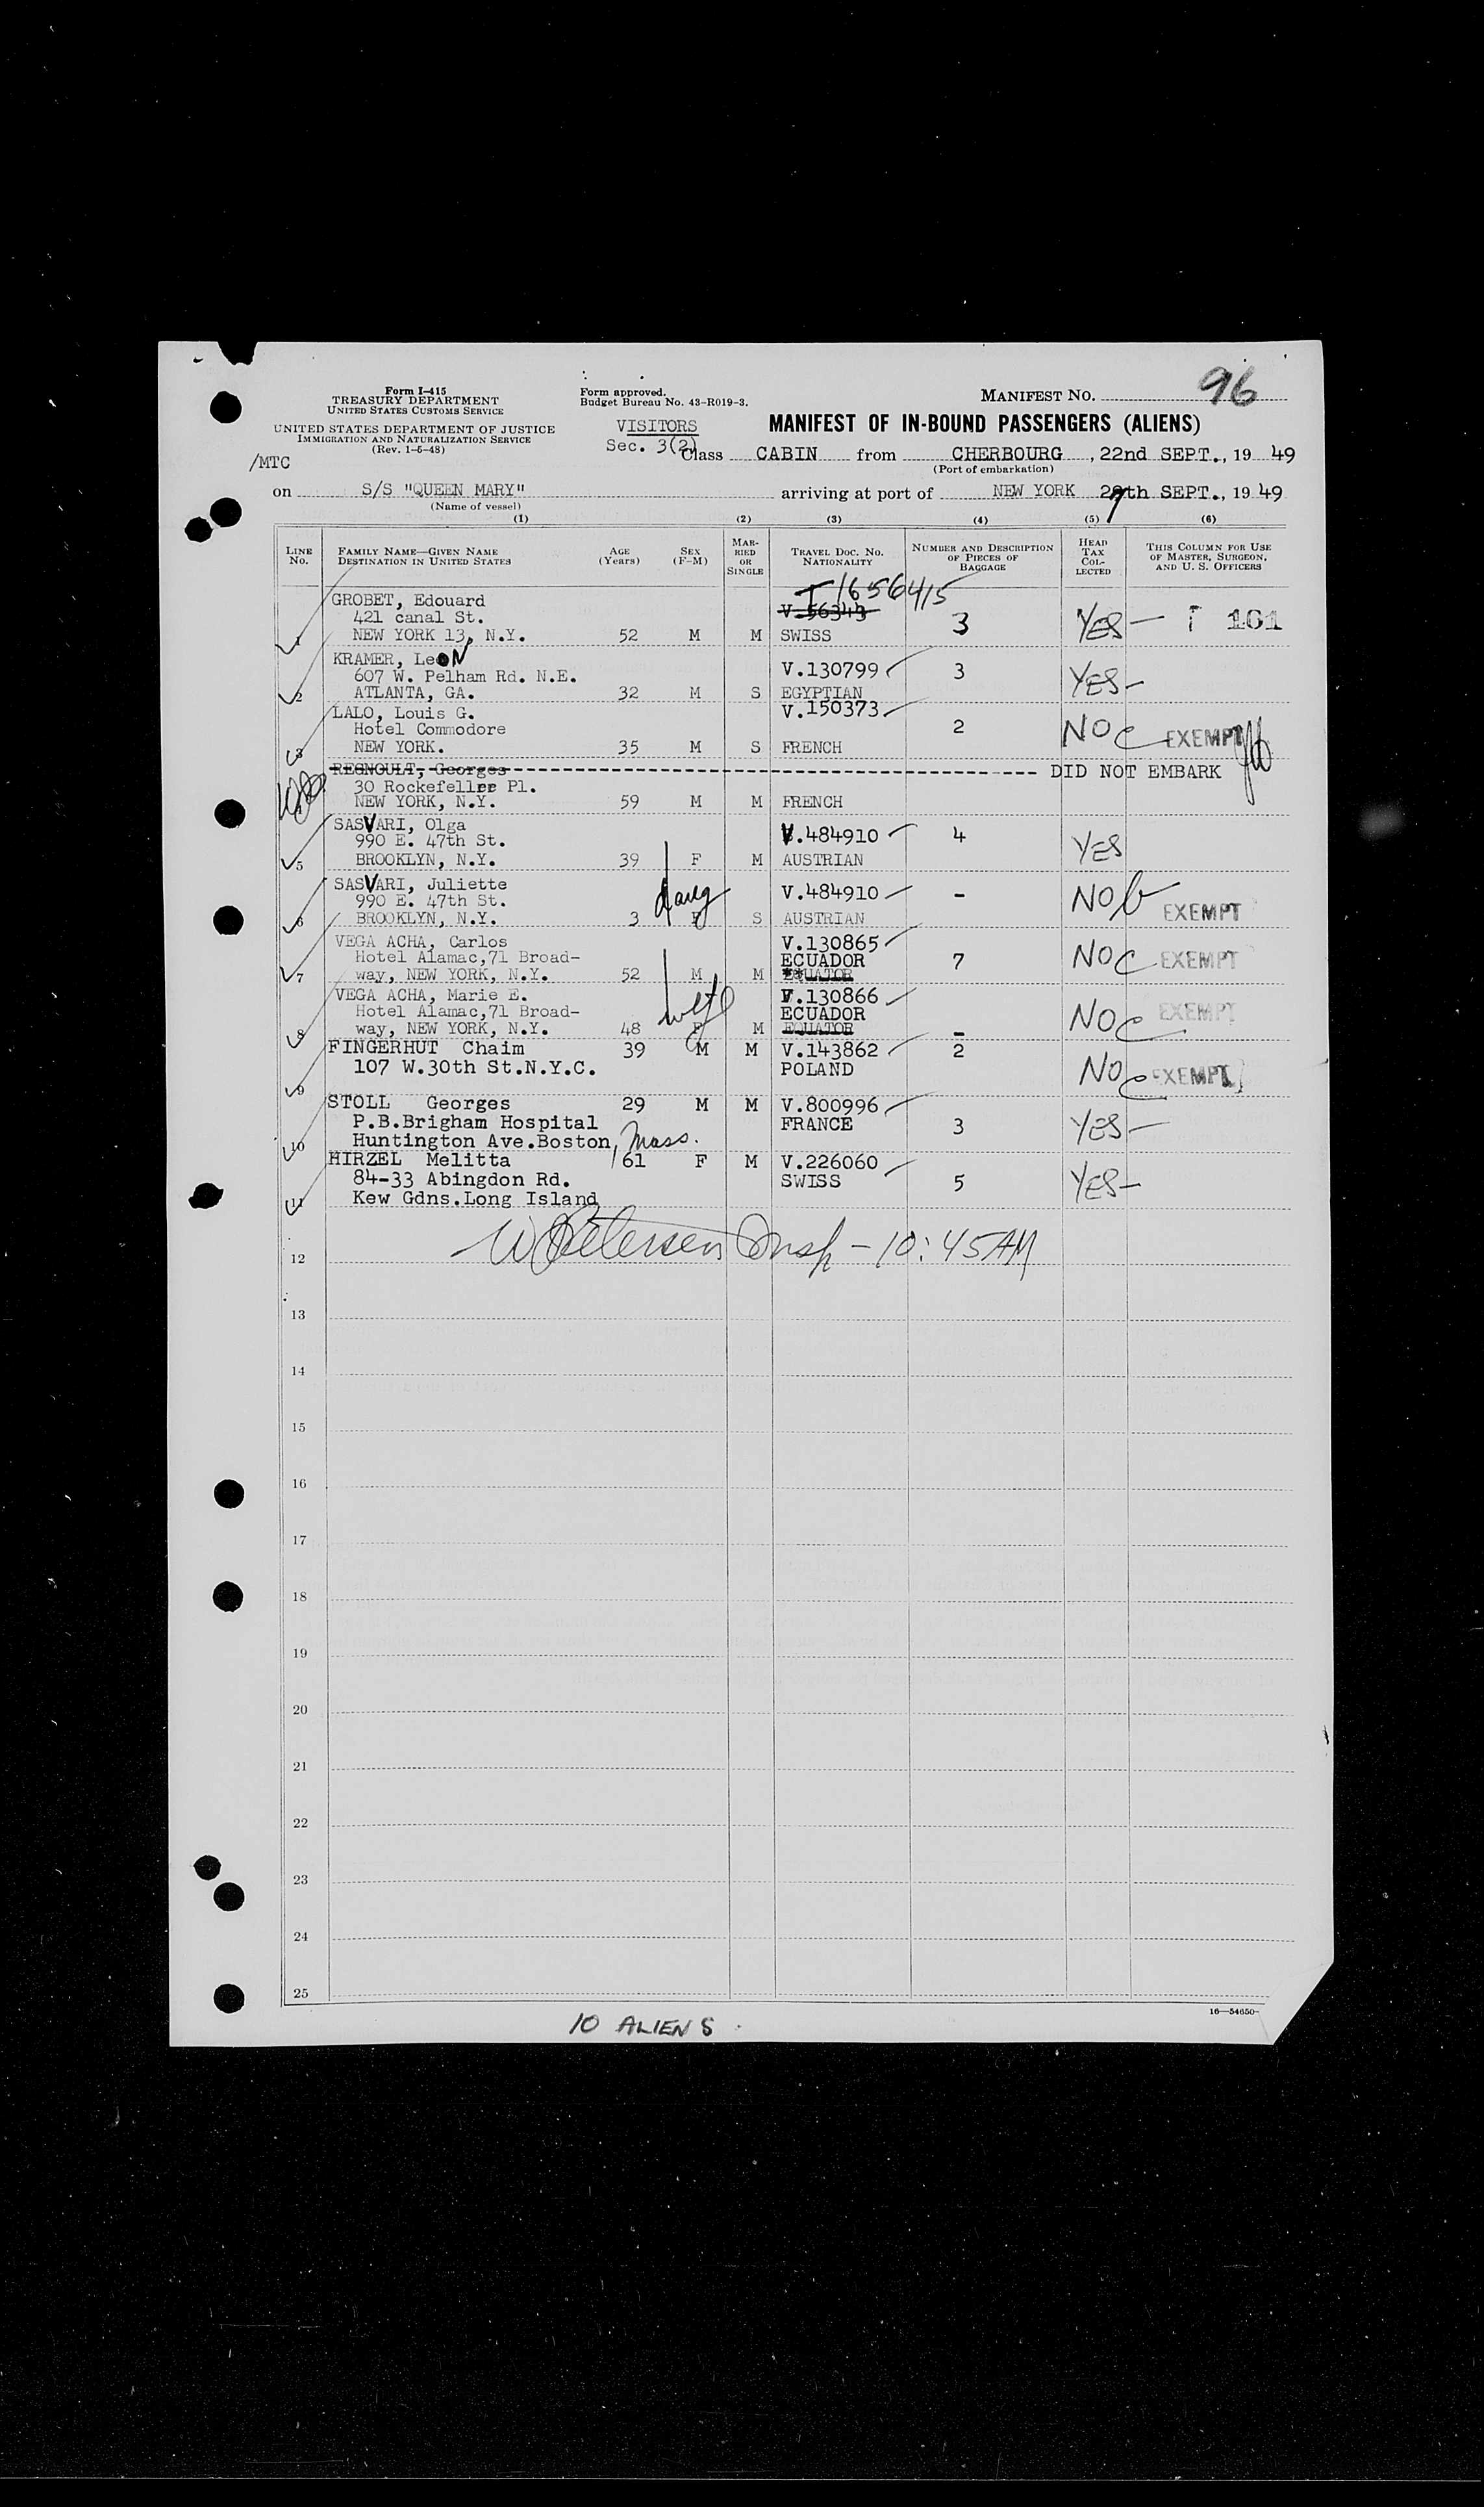 Form I-415
TREASURY DEPARTMENT
UNITED STATES CUSTOMS SERVICE
UNITED STATES DEPARTMENT OF JUSTICE
IMMIGRATION AND NATURALIZATION SERVICE
(Rev. 1-6-48)
/MTC
Form approved.
Budget Bureau No. 43-R019-3.
VISITORS
Sec. 3(2)
MANIFEST NO. 96
MANIFEST OF IN-BOUND PASSENGERS (ALIENS)
Class CABIN from CHERBOURG, 22nd SEPT., 19 49
(Port of embarkation)
on S/S "QUEEN MARY" arriving at port of NEW YORK 27th SEPT., 19 49
(Name of vessel)
(1) (2) (3) (4) (5) (6)
LINE NO. FAMILY NAME—GIVEN NAME DESTINATION IN UNITED STATES AGE (Years) SEX (F-M) MARRIED OR SINGLE TRAVEL DOC. NO. NATIONALITY NUMBER AND DESCRIPTION OF PIECES OF BAGGAGE HEAD TAX COLLECTED THIS COLUMN FOR USE OF MASTER, SURGEON, AND U. S. OFFICERS
T 1656415
GROBET, Edouard V.56343
421 canal St. 3 YES— 161
1 NEW YORK 13, N.Y. 52 M M SWISS
KRAMER, LeON V.130799 3
607 W. Pelham Rd. N.E. YES-
2 ATLANTA, GA. 32 M S EGYPTIAN
LALO, Louis G. V.150373
Hotel Commodore 2 NO c EXEMPT
3 NEW YORK. 35 M S FRENCH
REGNOULT, Georges DID NOT EMBARK
30 Rockefeller Pl.
NEW YORK, N.Y. 59 M M FRENCH
SASVARI, Olga V.484910 4
990 E. 47th St. YES
5 BROOKLYN, N.Y. 39 F M AUSTRIAN
SASVARI, Juliette V.484910 -
990 E. 47th St. daug NO b EXEMPT
6 BROOKLYN, N.Y. 3 F S AUSTRIAN
VEGA ACHA, Carlos V.130865
Hotel Alamac,71 Broad- ECUADOR 7 NO C EXEMPT
7 way, NEW YORK, N.Y. 52 M M EQUATOR
VEGA ACHA, Marie E. V.130866
Hotel Alamac,71 Broad- wife ECUADOR NO c EXEMPT
8 way, NEW YORK, N.Y. 48 F M EQUATOR -
FINGERHUT Chaim 39 M M V.143862 2
107 W.30th St.N.Y.C. POLAND NO c EXEMPT
9
STOLL Georges 29 M M V.800996
P.B.Brigham Hospital FRANCE 3 YES—
10 Huntington Ave.Boston, Mass.
HIRZEL Melitta 61 F M V.226060
84-33 Abingdon Rd. SWISS 5 YES-
11 Kew Gdns.Long Island
Petersen Insp - 10:45AM
12
13
14
15
16
17
18
19
20
21
22
23
24
25
16—54650-
10 ALIENS